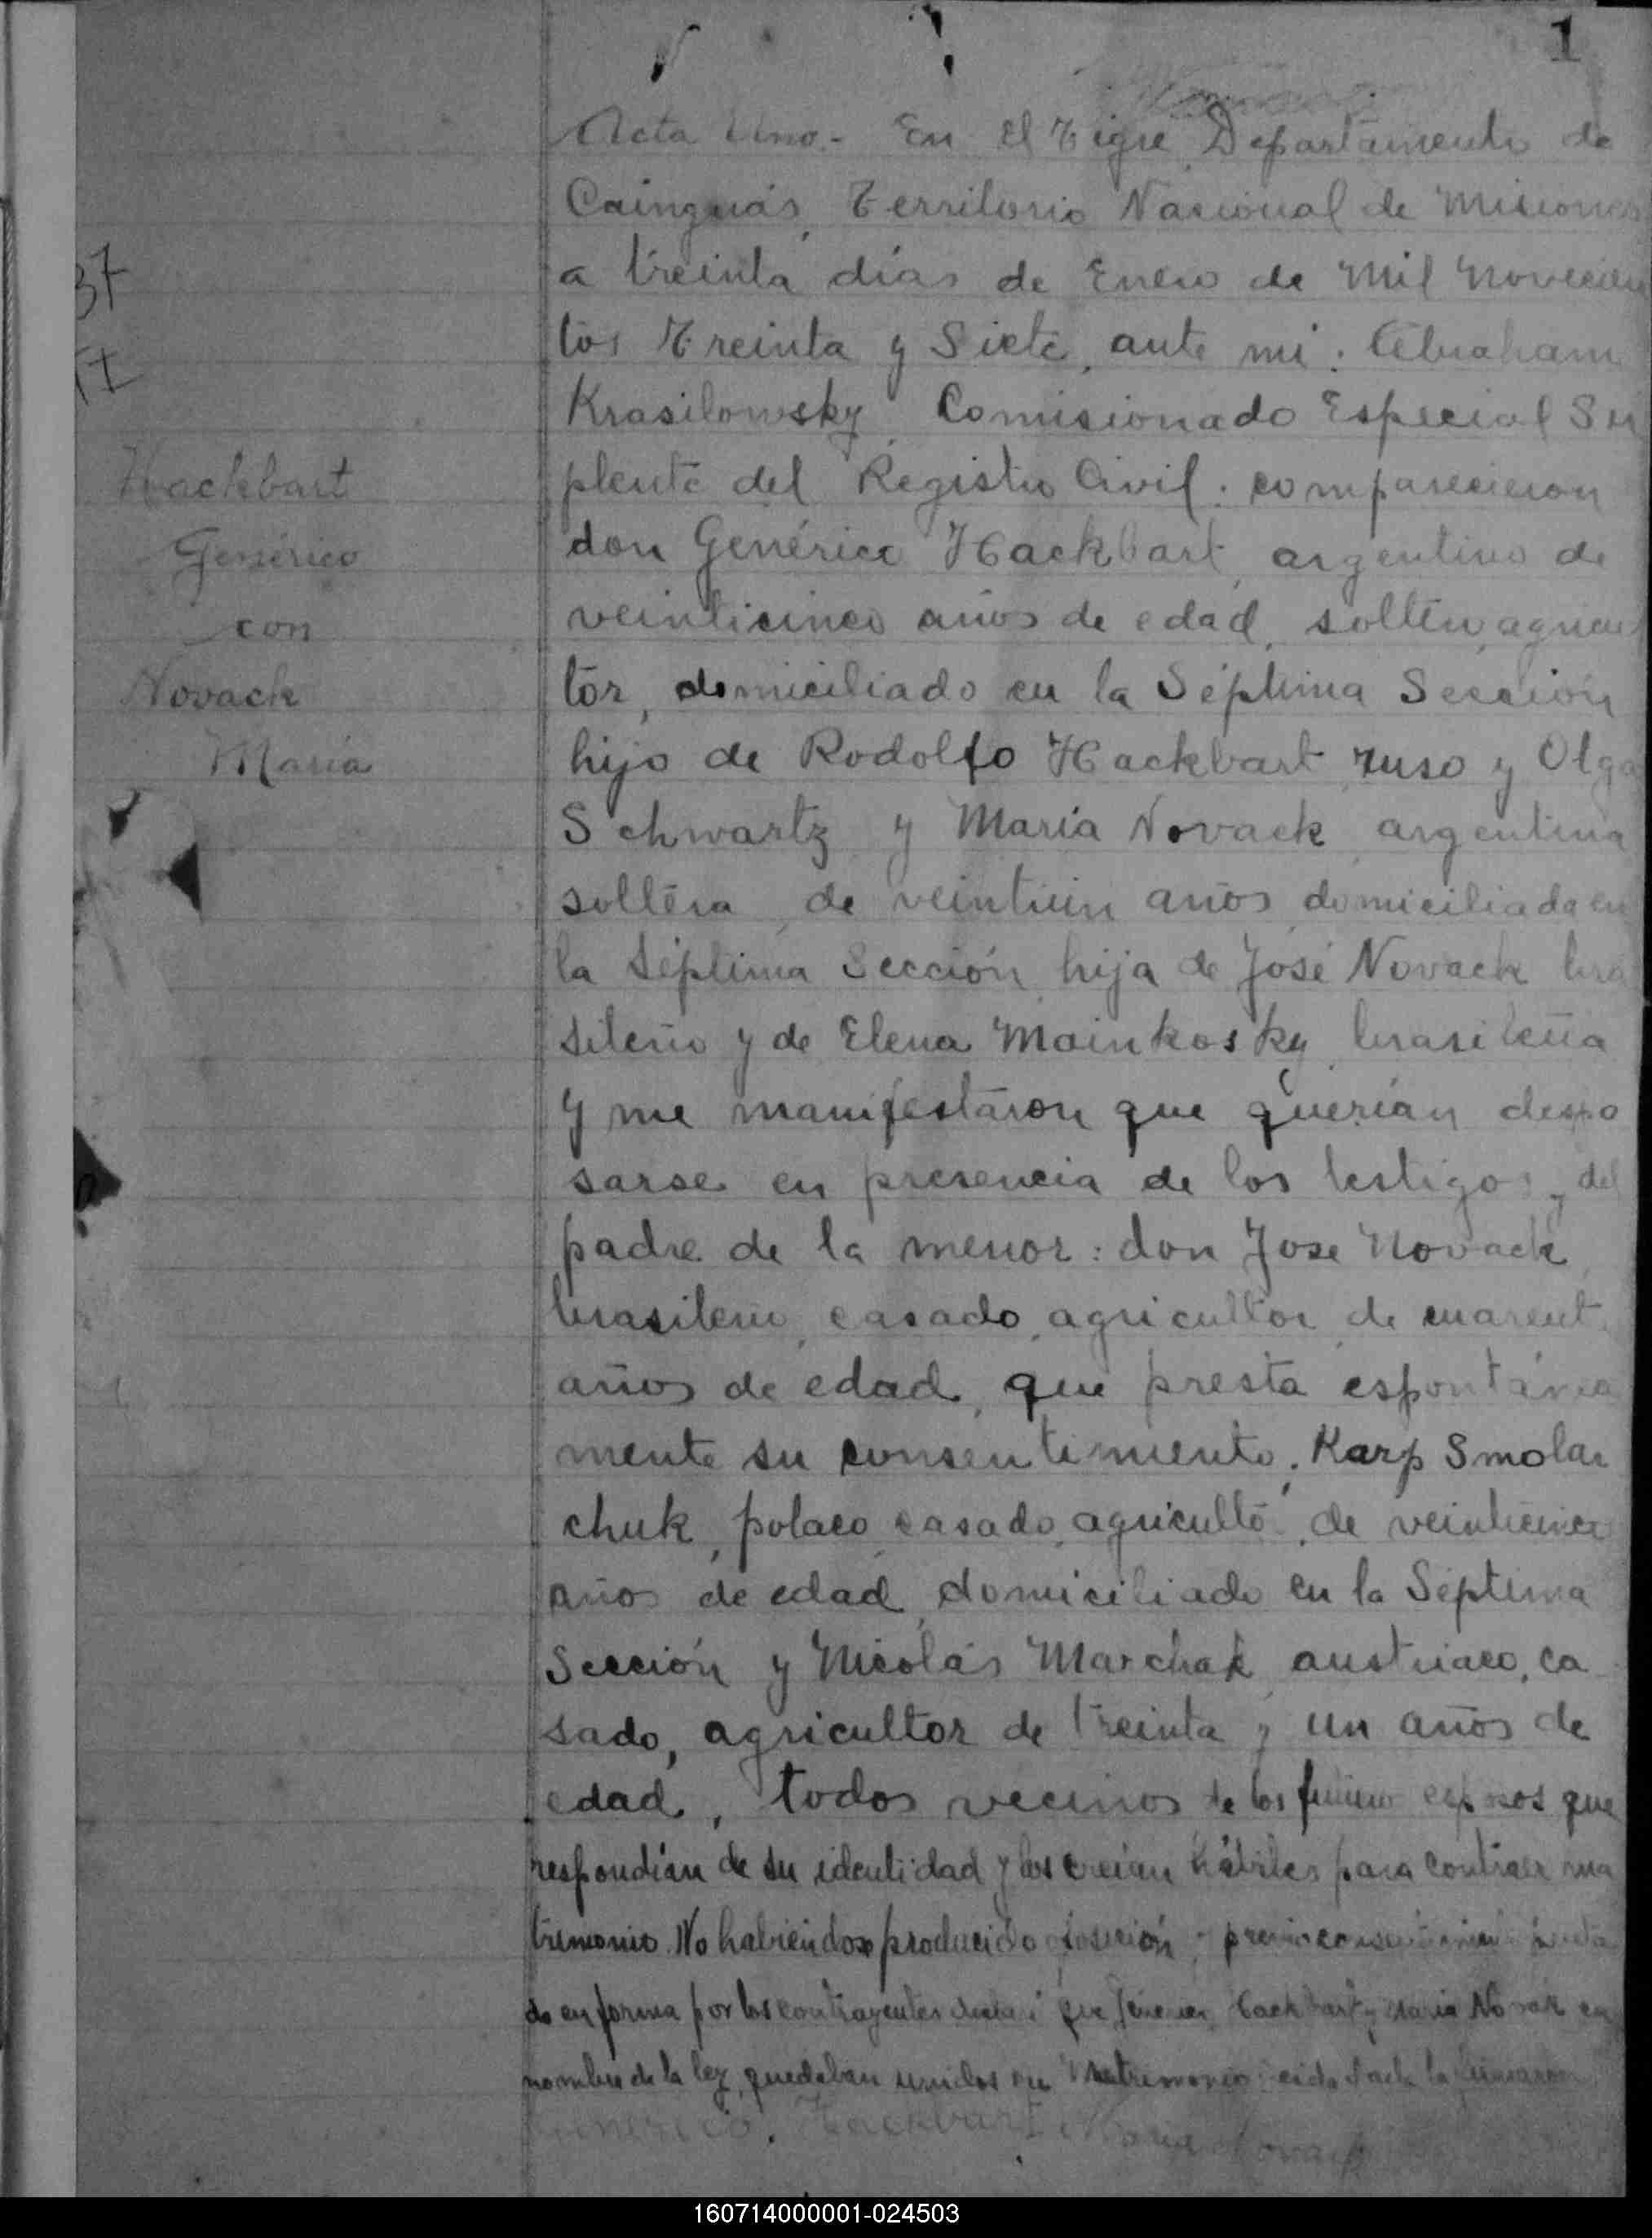 1
Acta Uno.- En El Tigre Departamento de
Cainguás, Territorio Nacional de Misiones
a treinta días de Enero de Mil Novecien
37
tos Treinta y Siete, ante mi: Abraham
Krasilowsky, Comisionado Especial Su
Hackbart
plente del Registro Civil: comparecieron
Genérico
don Genérico Hackbart, argentino de
con
veinticinco años de edad, soltero, agricul
Novack
tor, domiciliado en la Séptima Sección
María
hijo de Rodolfo Hackbart, ruso y Olga
Schwartz y María Novack, argentina
soltera, de veintiún años, domiciliada en
la Séptima Sección, hija de José Novack bra
sileño y de Elena Mainkosky, brasileña
y me manifestaron que querían despo
sarse en presencia de los testigos y del
padre de la menor: don Jose Novack,
brasileño, casado, agricultor, de cuarent
años de edad, que presta espontánea
mente su consentimiento, Karp Smolar
chuk, polaco, casado, agricultor, de veinticinco
años de edad, domiciliado en la Séptima
Sección y Nicolás Marchak, austriaco, ca
sado, agricultor de treinta y un años de
edad, todos vecinos de los futuros esposos que
respondían de su identidad y los creían hábiles para contraer ma
trimonio. No habiendose producido oposición y previo consentimiento presta
do en forma por los contrayentes declaré que Genérico Hackbart y María Novak en
nombre de la ley, quedaban unidos en matrimonio. Leída el acta la firmaron
Generico Hackbart Maria Novack
160714000001-024503